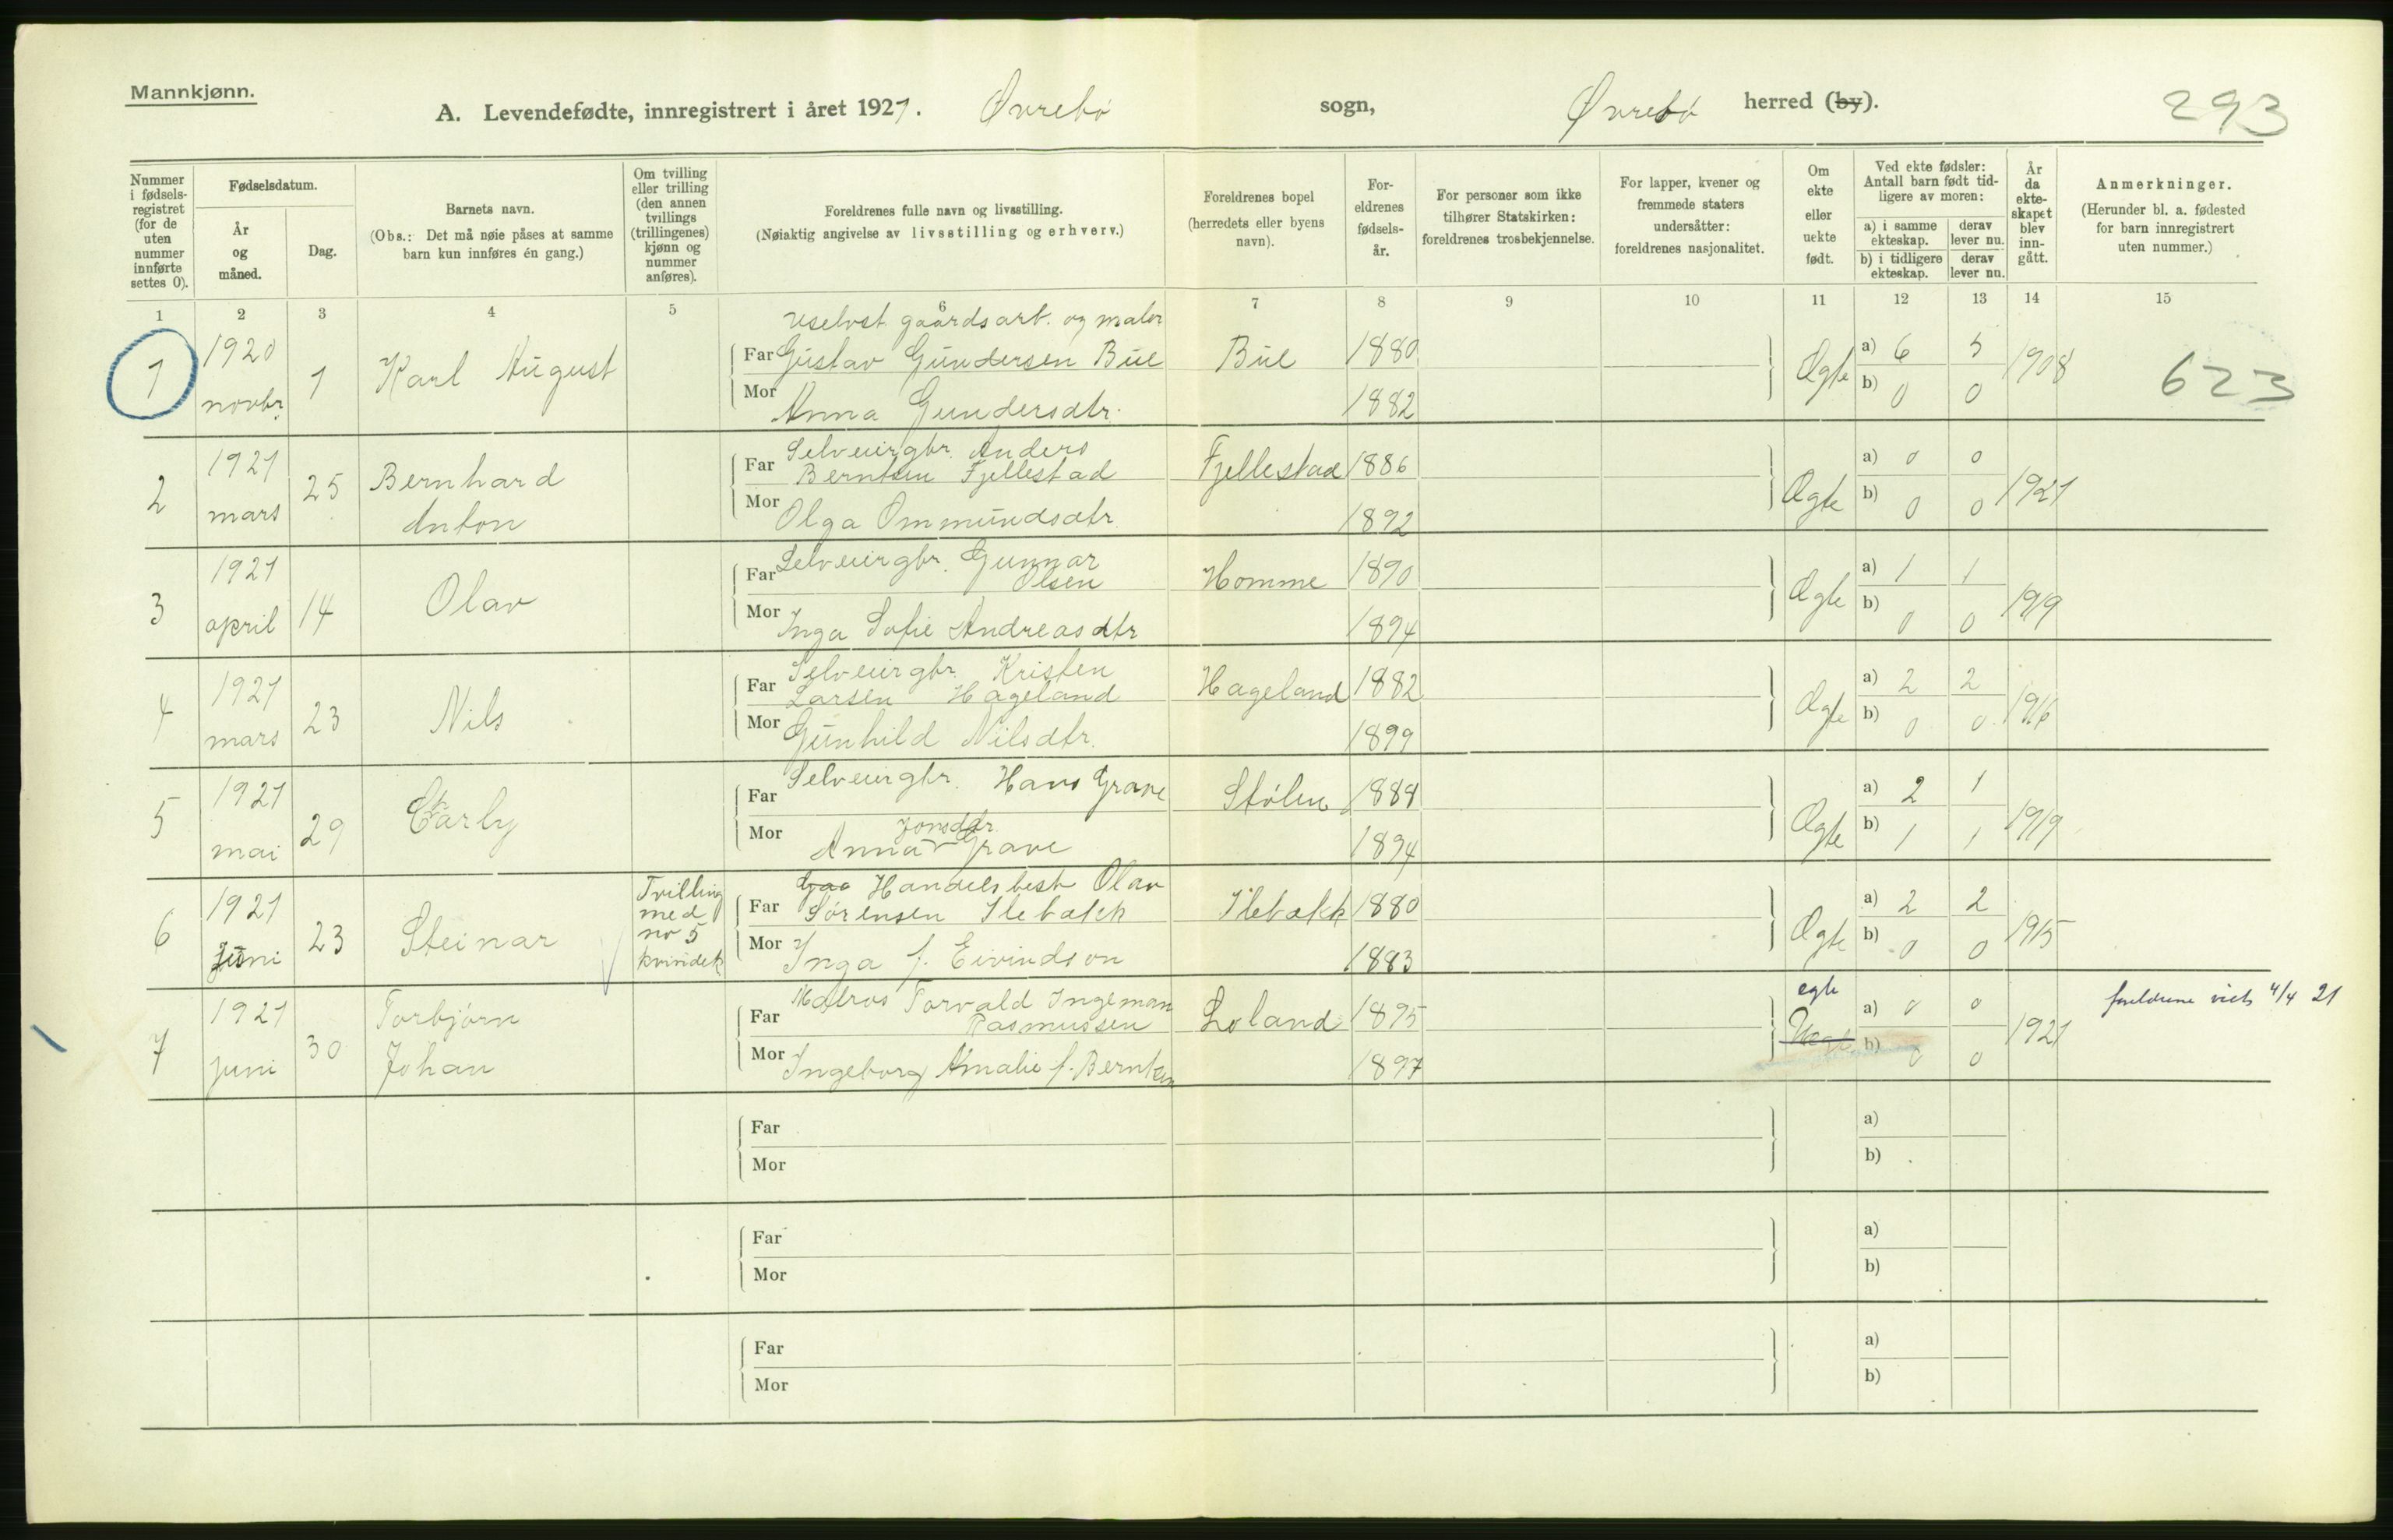 Mannkjønn.
A. Levendefødte, innregistrert i året 1921. Øvrebø sogn, Øvrebø herred (by).
293
Nummer i fødselsregistret (for de uten nummer innførte settes 0).
Fødselsdatum.
År og måned.
Dag.
Barnets navn.
(Obs.: Det må nøie påses at samme barn kun innføres én gang.)
Om tvilling eller trilling (den annen tvillings (trillingenes) kjønn og nummer anføres).
Foreldrenes fulle navn og livsstilling.
(Nøiaktig angivelse av livsstilling og erhverv.)
Foreldrenes bopel
(herredets eller byens navn).
Foreldrenes fødselsår.
For personer som ikke tilhører Statskirken: foreldrenes trosbekjennelse.
For lapper, kvener og fremmede staters undersåtter: foreldrenes nasjonalitet.
Om ekte eller uekte født.
Ved ekte fødsler: Antall barn født tidligere av moren:
a) i samme ekteskap. derav lever nu.
b) i tidligere ekteskap. derav lever nu.
År da ekteskapet blev inngått.
Anmerkninger.
(Herunder bl. a. fødested for barn innregistrert uten nummer.)
1 2 3 4 5 6 7 8 9 10 11 12 13 14 15
uselvst. gaårdsarb. og maler
1 1920 novbr. 1 Karl August Far Gustav Gundersen Bue Bue 1880 Ægte a) 6 5 1908 623
Mor Anna Gundersdtr. 1882 b) 0 0
2 1921 mars 25 Bernhard Anton Far Selveiergbr. Anders Berntsen Fjellestad Fjellestad 1886 Ægte a) 0 0 1921
Mor Olga Ommundsdtr 1892 b) 0 0
3 1921 april 14 Olav Far Selveiergbr. Gunnar Olsen Homme 1890 Ægte a) 1 1 1919
Mor Inga Sofie Andreasdtr 1894 b) 0 0
4 1921 mars 23 Nils Far Selveiergbr. Kristen Larsen Hageland Hageland 1882 Ægte a) 2 2 1916
Mor Gunhild Nilsdtr. 1899 b) 0 0
5 1921 mai 29 Far Selveiergbr. Hans Grave Stølen Ægte a) 2 1 1919
Mor Anna Jonsdtr. Grave 1894 b) 1 1
6 1921 Juni 23 Steinar Tvilling med no 5 kvindek Far Handelsbest Olav Sørensen Ilebækk Ilebækk 1880 Ægte a) 2 2 1915
Mor Inga f. Eivindson 1883 b) 0 0
7 1921 juni 30 Torbjørn Johan Far Matros Torvald Ingeman Rasmussen Loland 1895 egte Uægte a) 0 0 1921 foreldrene viet 4/4 21
Mor Ingeborg Amalie f. Berntsen 1897 b) 0 0
Far a)
Mor b)
Far a)
Mor b)
Far a)
Mor b)